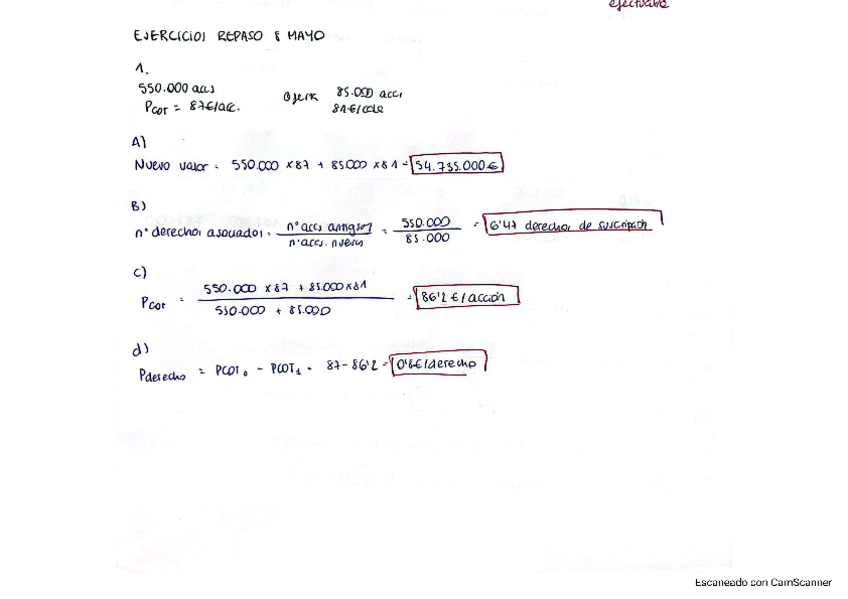 efectuará
EJERCICIOS REPASO 8 MAYO
1.
550.000 accs
Pcot = 87€/acc.
Oferta 85.000 accs
81€/cada
A)
Nuevo valor = 550.000 x 87 + 85.000 x 81 = 54.735.000€
B)
nº derechos asociados = nº accs antiguas / nº accs. nuevas = 550.000 / 85.000 = 6'47 derechos de suscripción
c)
Pcot = 550.000 x 87 + 85.000 x 81 / 550.000 + 85.000 = 86'2 €/acción
d)
Pderecho = PCOT₀ - PCOT₁ = 87 - 86'2 = 0'8€/derecho
Escaneado con CamScanner